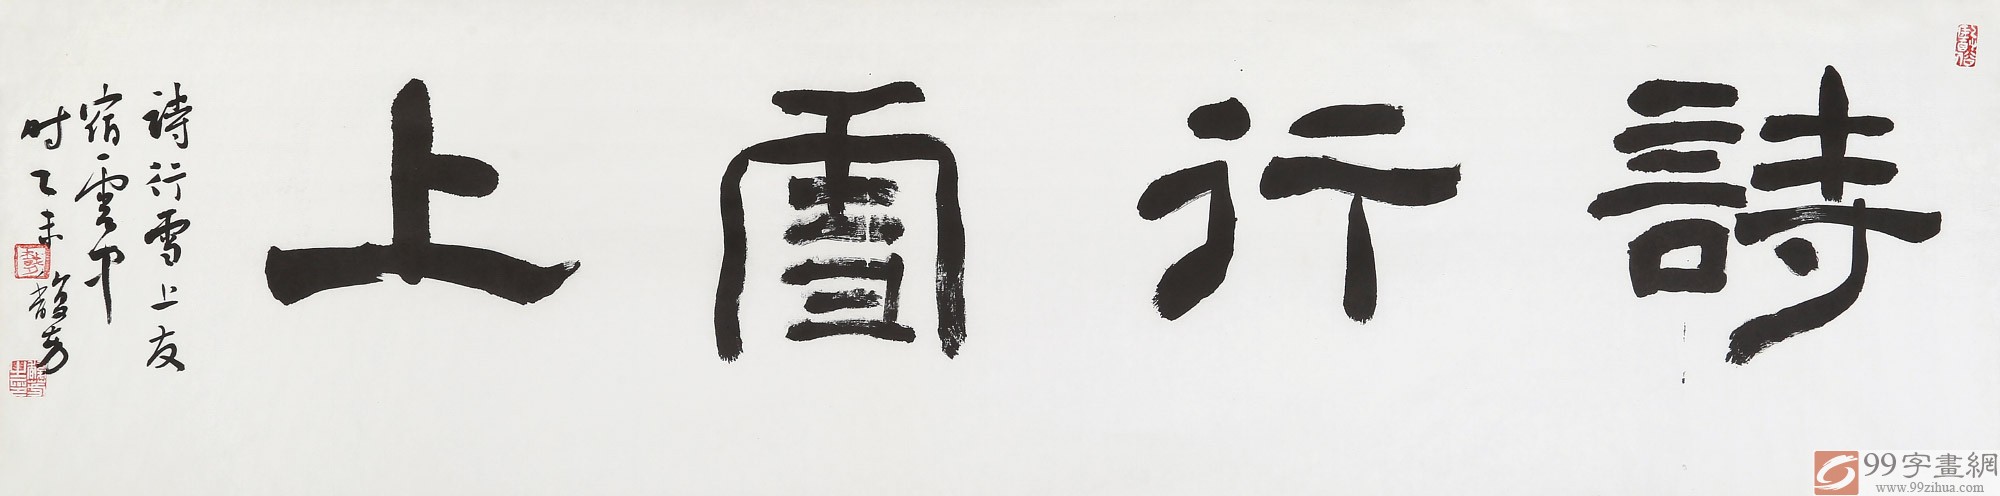 詩行雪上
詩行雪上友
宿雲中
时乙未馥芳
99字畫網
www.99zihua.com